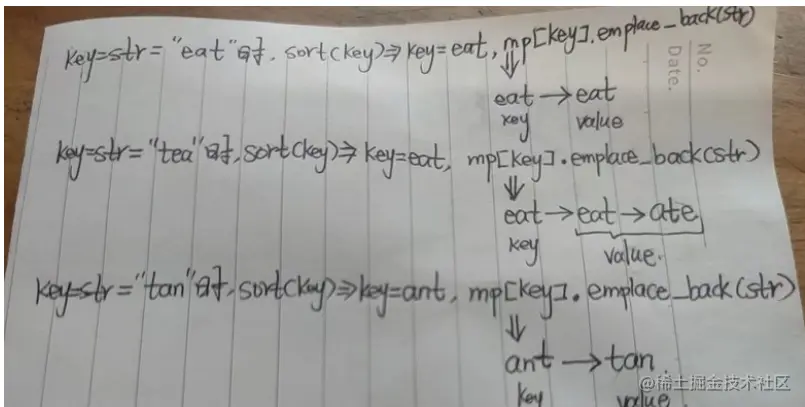 key=str="eat"时, sort(key)⇒key=eat, mp[key].emplace_back(str)
No.
Date.
⇓
eat→eat
key value
key=str="tea"时, sort(key)⇒key=eat, mp[key].emplace_back(str)
⇓
eat→eat→ate
key value.
key=str="tan"时, sort(key)⇒key=ant, mp[key].emplace_back(str)
⇓
ant→tan.
key value.
@稀土掘金技术社区